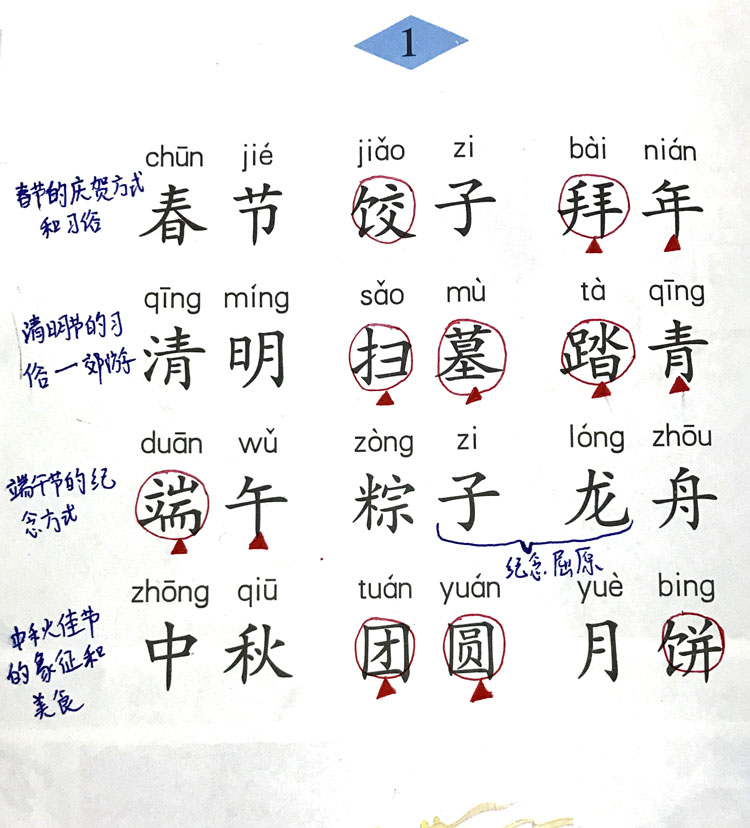 1
chūn jié jiǎo zi bài nián
春节的庆贺方式
和习俗
春节 饺子 拜年
qīng míng sǎo mù tà qīng
清明节的习
俗一郊游
清明 扫墓 踏青
duān wǔ zòng zi lóng zhōu
端午节的纪
念方式
端午 粽子 龙舟
纪念屈原
zhōng qiū tuán yuán yuè bing
中秋佳节
的象征和
美食
中秋 团圆 月饼